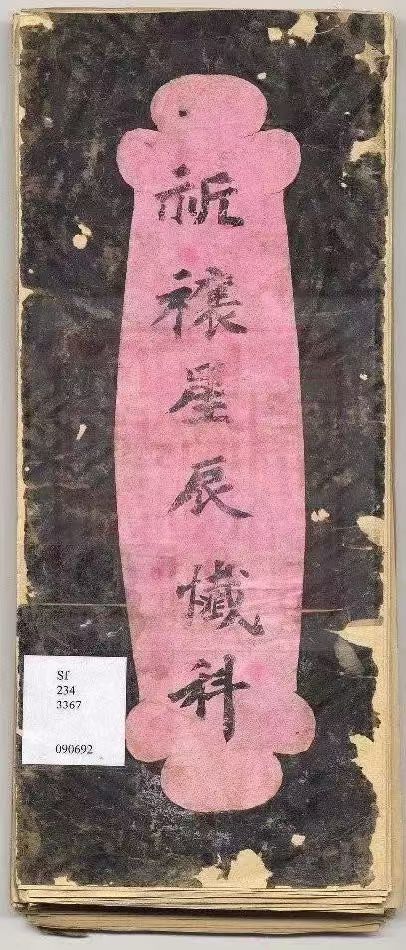 祈禳星辰懺科
Sf
234
3367
090692